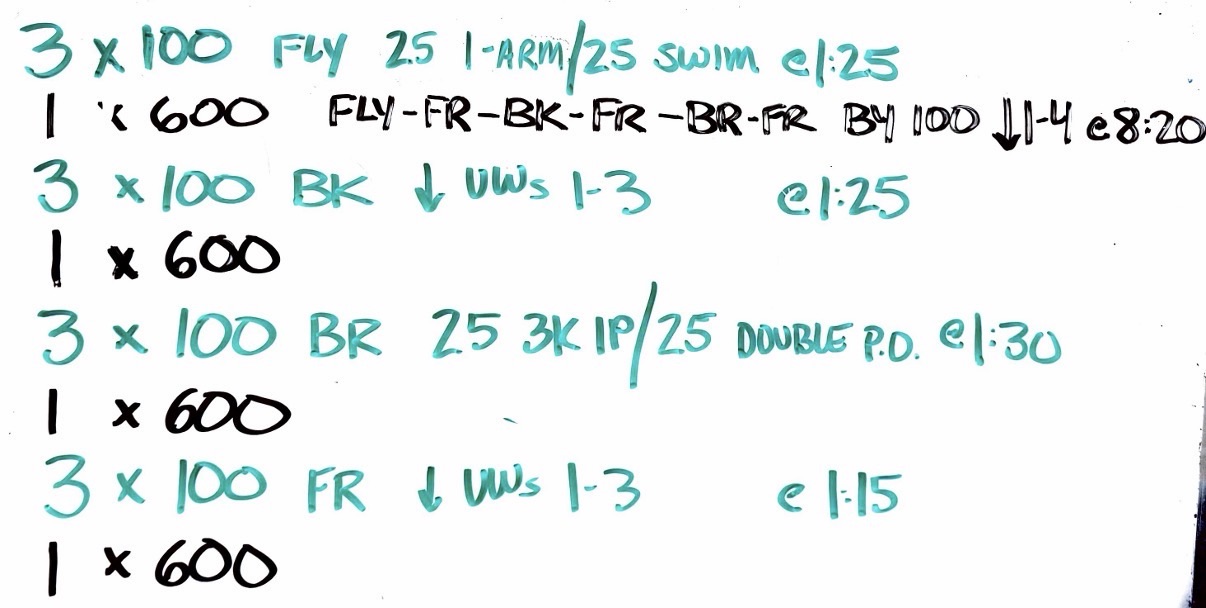 3 x 100 FLY 25 1-ARM/25 SWIM @1:25
1 x 600 FLY-FR-BK-FR-BR-FR BY 100 ↓1-4 @8:20
3 x 100 BK ↓ UWs 1-3 @1:25
1 x 600
3 x 100 BR 25 3K 1P/25 DOUBLE P.O. @1:30
1 x 600
3 x 100 FR ↓ UWs 1-3 @ 1:15
1 x 600